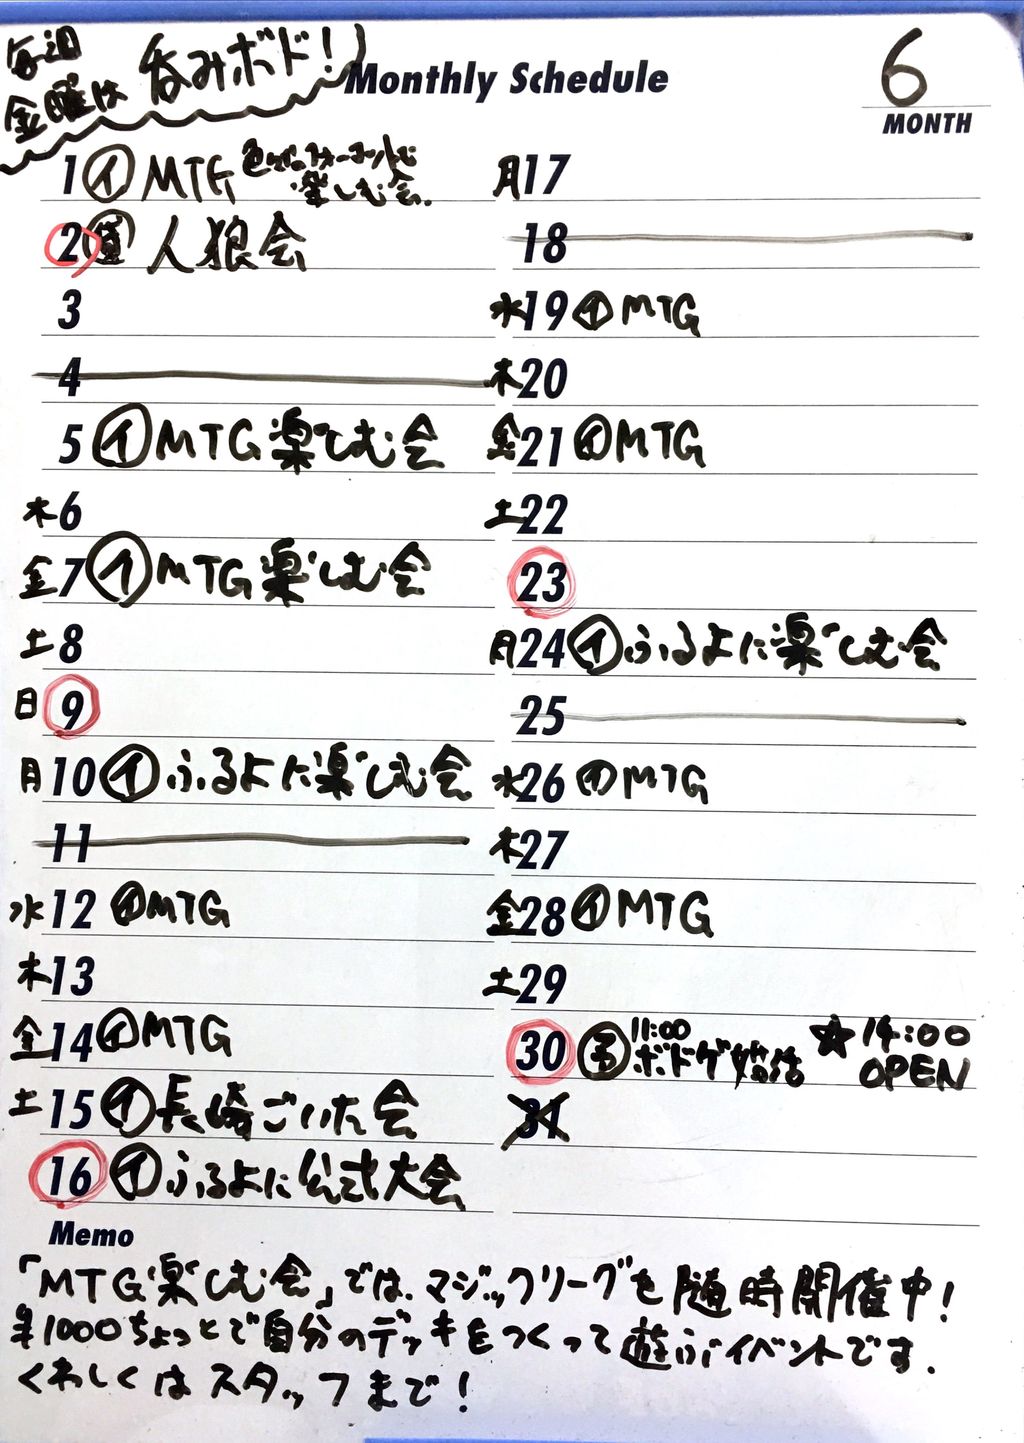 毎週
金曜は 呑みボド!
Monthly Schedule
6
MONTH
1 イ MTG 色々なフォーマットで
楽しむ会.
2 人狼会
3
4
5 イ MTG楽しむ会
木 6
金 7 イ MTG楽しむ会
土 8
日 9
月 10 イ ふるよに楽しむ会
11
水 12 イ MTG
木 13
金 14 イ MTG
土 15 イ 長崎ごいた会
16 イ ふるよに公式大会
月 17
18
水 19 イ MTG
木 20
金 21 イ MTG
土 22
23
月 24 イ ふるよに楽しむ会
25
水 26 イ MTG
木 27
金 28 イ MTG
土 29
30 11:00 ★14:00
ボドゲ婚活 OPEN
31
Memo
「MTG楽しむ会」では、マジックリーグを随時開催中!
¥1000ちょっとで自分のデッキをつくって遊ぶイベントです.
くわしくはスタッフまで!